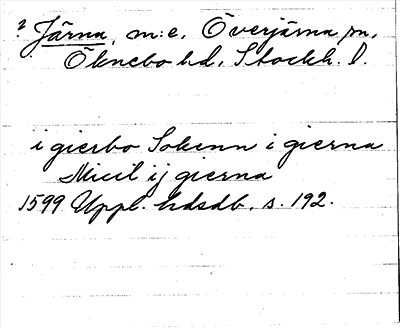 ? Järna, m:e, Överjärna sn,
Öknebo hd, Stockh. l.
i gierbo Sokenn i gierna
Micil ij gierna
1599 Uppl. hdsdb, s. 192.